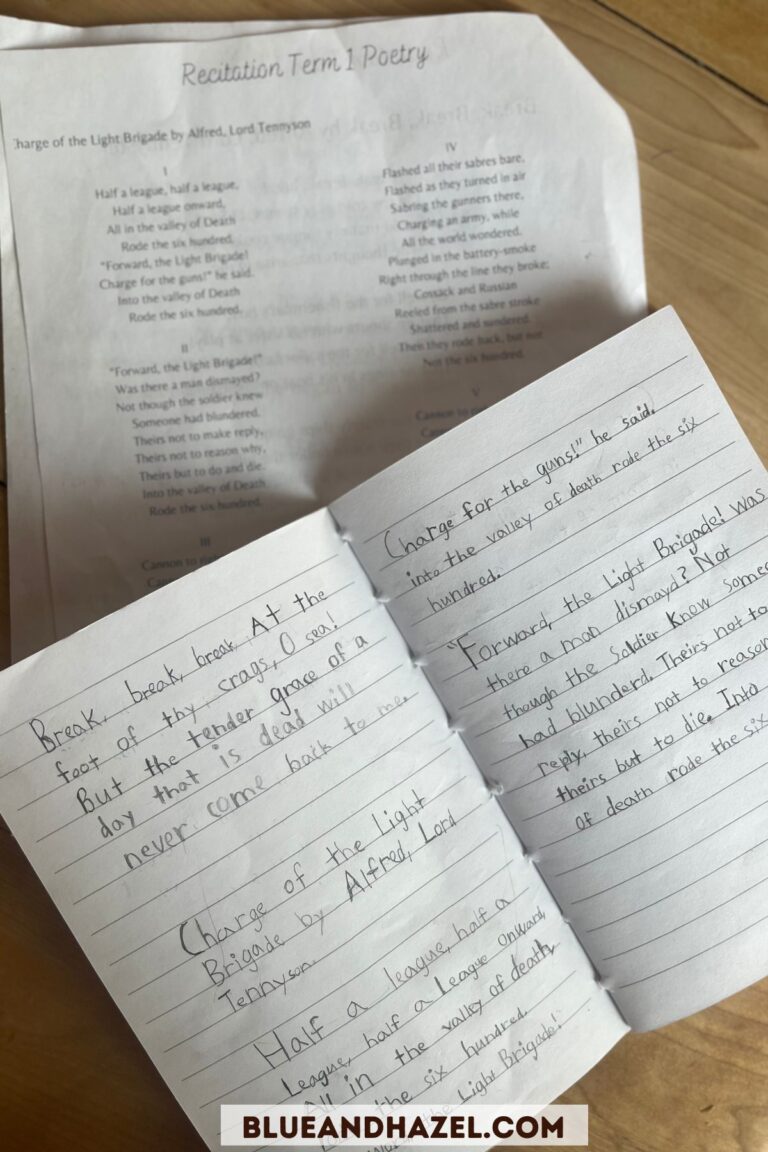 Recitation Term 1 Poetry
Charge of the Light Brigade by Alfred, Lord Tennyson
I
Half a league, half a league,
Half a league onward,
All in the valley of Death
Rode the six hundred.
"Forward, the Light Brigade!
Charge for the guns!" he said.
Into the valley of Death
Rode the six hundred.
II
"Forward, the Light Brigade!"
Was there a man dismayed?
Not though the soldier knew
Someone had blundered.
Theirs not to make reply,
Theirs not to reason why,
Theirs but to do and die.
Into the valley of Death
Rode the six hundred.
III
Cannon to
IV
Flashed all their sabres bare,
Flashed as they turned in air
Sabring the gunners there,
Charging an army, while
All the world wondered.
Plunged in the battery-smoke
Right through the line they broke;
Cossack and Russian
Reeled from the sabre stroke
Shattered and sundered.
Then they rode back, but not
Not the six hundred.
V
Cannon to
Break, break, break At the
foot of thy crags, O sea!
But the tender grace of a
day that is dead will
never come back to me.
Charge of the Light
Brigade by Alfred, Lord
Tennyson.
Half a league, half a
League, half a League onward,
All in the valley of death,
the six hundred.
the Light Brigade!
Charge for the guns!" he said.
into the valley of death rode the six
hundred.
"Forward, the Light Brigade! was
there a man dismayd? Not
though the soldier knew
had blunderd. Theirs not to
reply, theirs not to reason
theirs but to die. Into
of death rode the six
BLUEANDHAZEL.COM